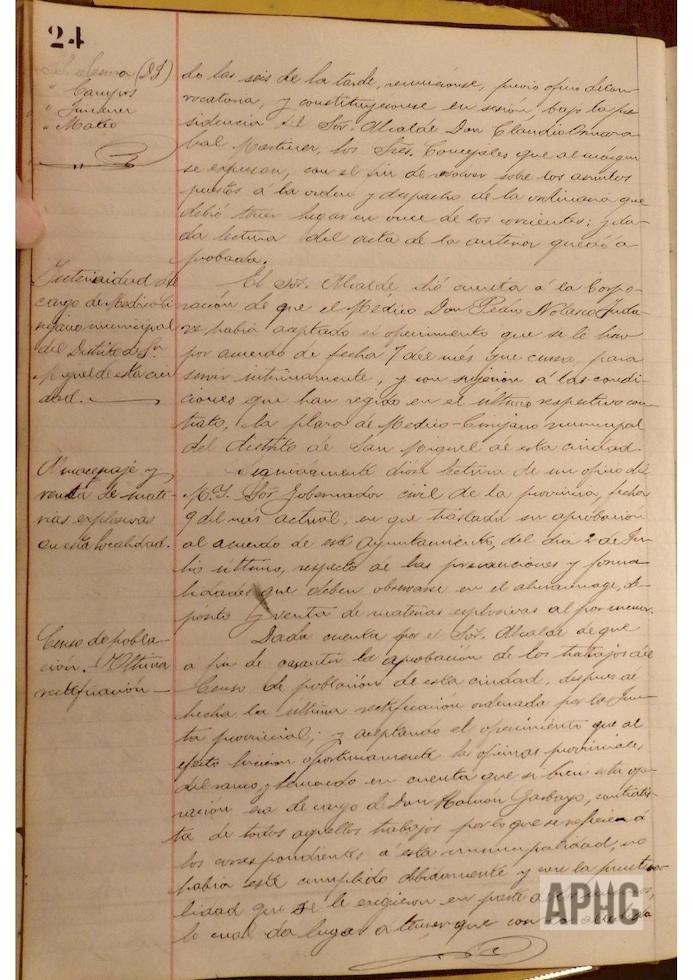 24
Sr. Serna (D. J.)
" Campos
" Jiménez
" Mateo
do las seis de la tarde, reuniéronse, previo oficio de con-
vocatoria, y constituyéronse en sesión, bajo la pre-
sidencia del Sor. Alcalde Don Claudio
bal Martínez, los Sres. Concejales que al márgen
se expresan, con el fin de resolver sobre los asuntos
puestos á la orden y despacho de la ordinaria que
debió tener lugar en once de los corrientes; y da-
da lectura del acta de la anterior quedó a-
probada.
Interinidad del
cargo de Médico Ci-
rujano municipal
del Distrito de Sn.
Miguel de esta ciu-
dad.
El Sor. Alcalde dió cuenta á la Corpo-
ración de que el Médico Don Pedro Nolasco
había aceptado el ofrecimiento que se le hizo
por acuerdo de fecha 7 del més que cursa, para
servir interinamente, y con sujeción á las condi-
ciones que han regido en el último respectivo con-
trato, la plaza de Médico-Cirujano municipal
del distrito de San Miguel de esta ciudad.
Almacenaje y
venta de mate-
rias explosivas
en esta localidad.
Seguidamente dióse lectura de un oficio del
M. I. Sor Gobernador civil de la provincia, fecha
9 del més actual, en que traslada su aprobación
al acuerdo de este Ayuntamiento, del día 2 de Ju-
lio último, respecto de las prevenciones y forma-
lidades que deben observarse en el almacenage, de-
pósito y venta de materias explosivas al por menor.
Censo de pobla-
ción. Última
rectificación
Dada cuenta por el Sor. Alcalde de que
a fin de la aprobación de los trabajos del
Censo de población de esta ciudad, después de
hecha la última rectificación ordenada por la Jun-
ta provincial; y aceptando el ofrecimiento que al
efecto hicieron oportunamente las oficinas provinciales
del ramo, y teniendo en cuenta que si bien esta ope-
ración era de cargo de Don Ramón Garbayo, contratis-
ta de todos aquellos trabajos por lo que se refiere á
los correspondientes á esta municipalidad, no
había este cumplido debidamente y con la puntua-
lidad que se le exigieron en parte
lo cual da lugar a tener que
APHC